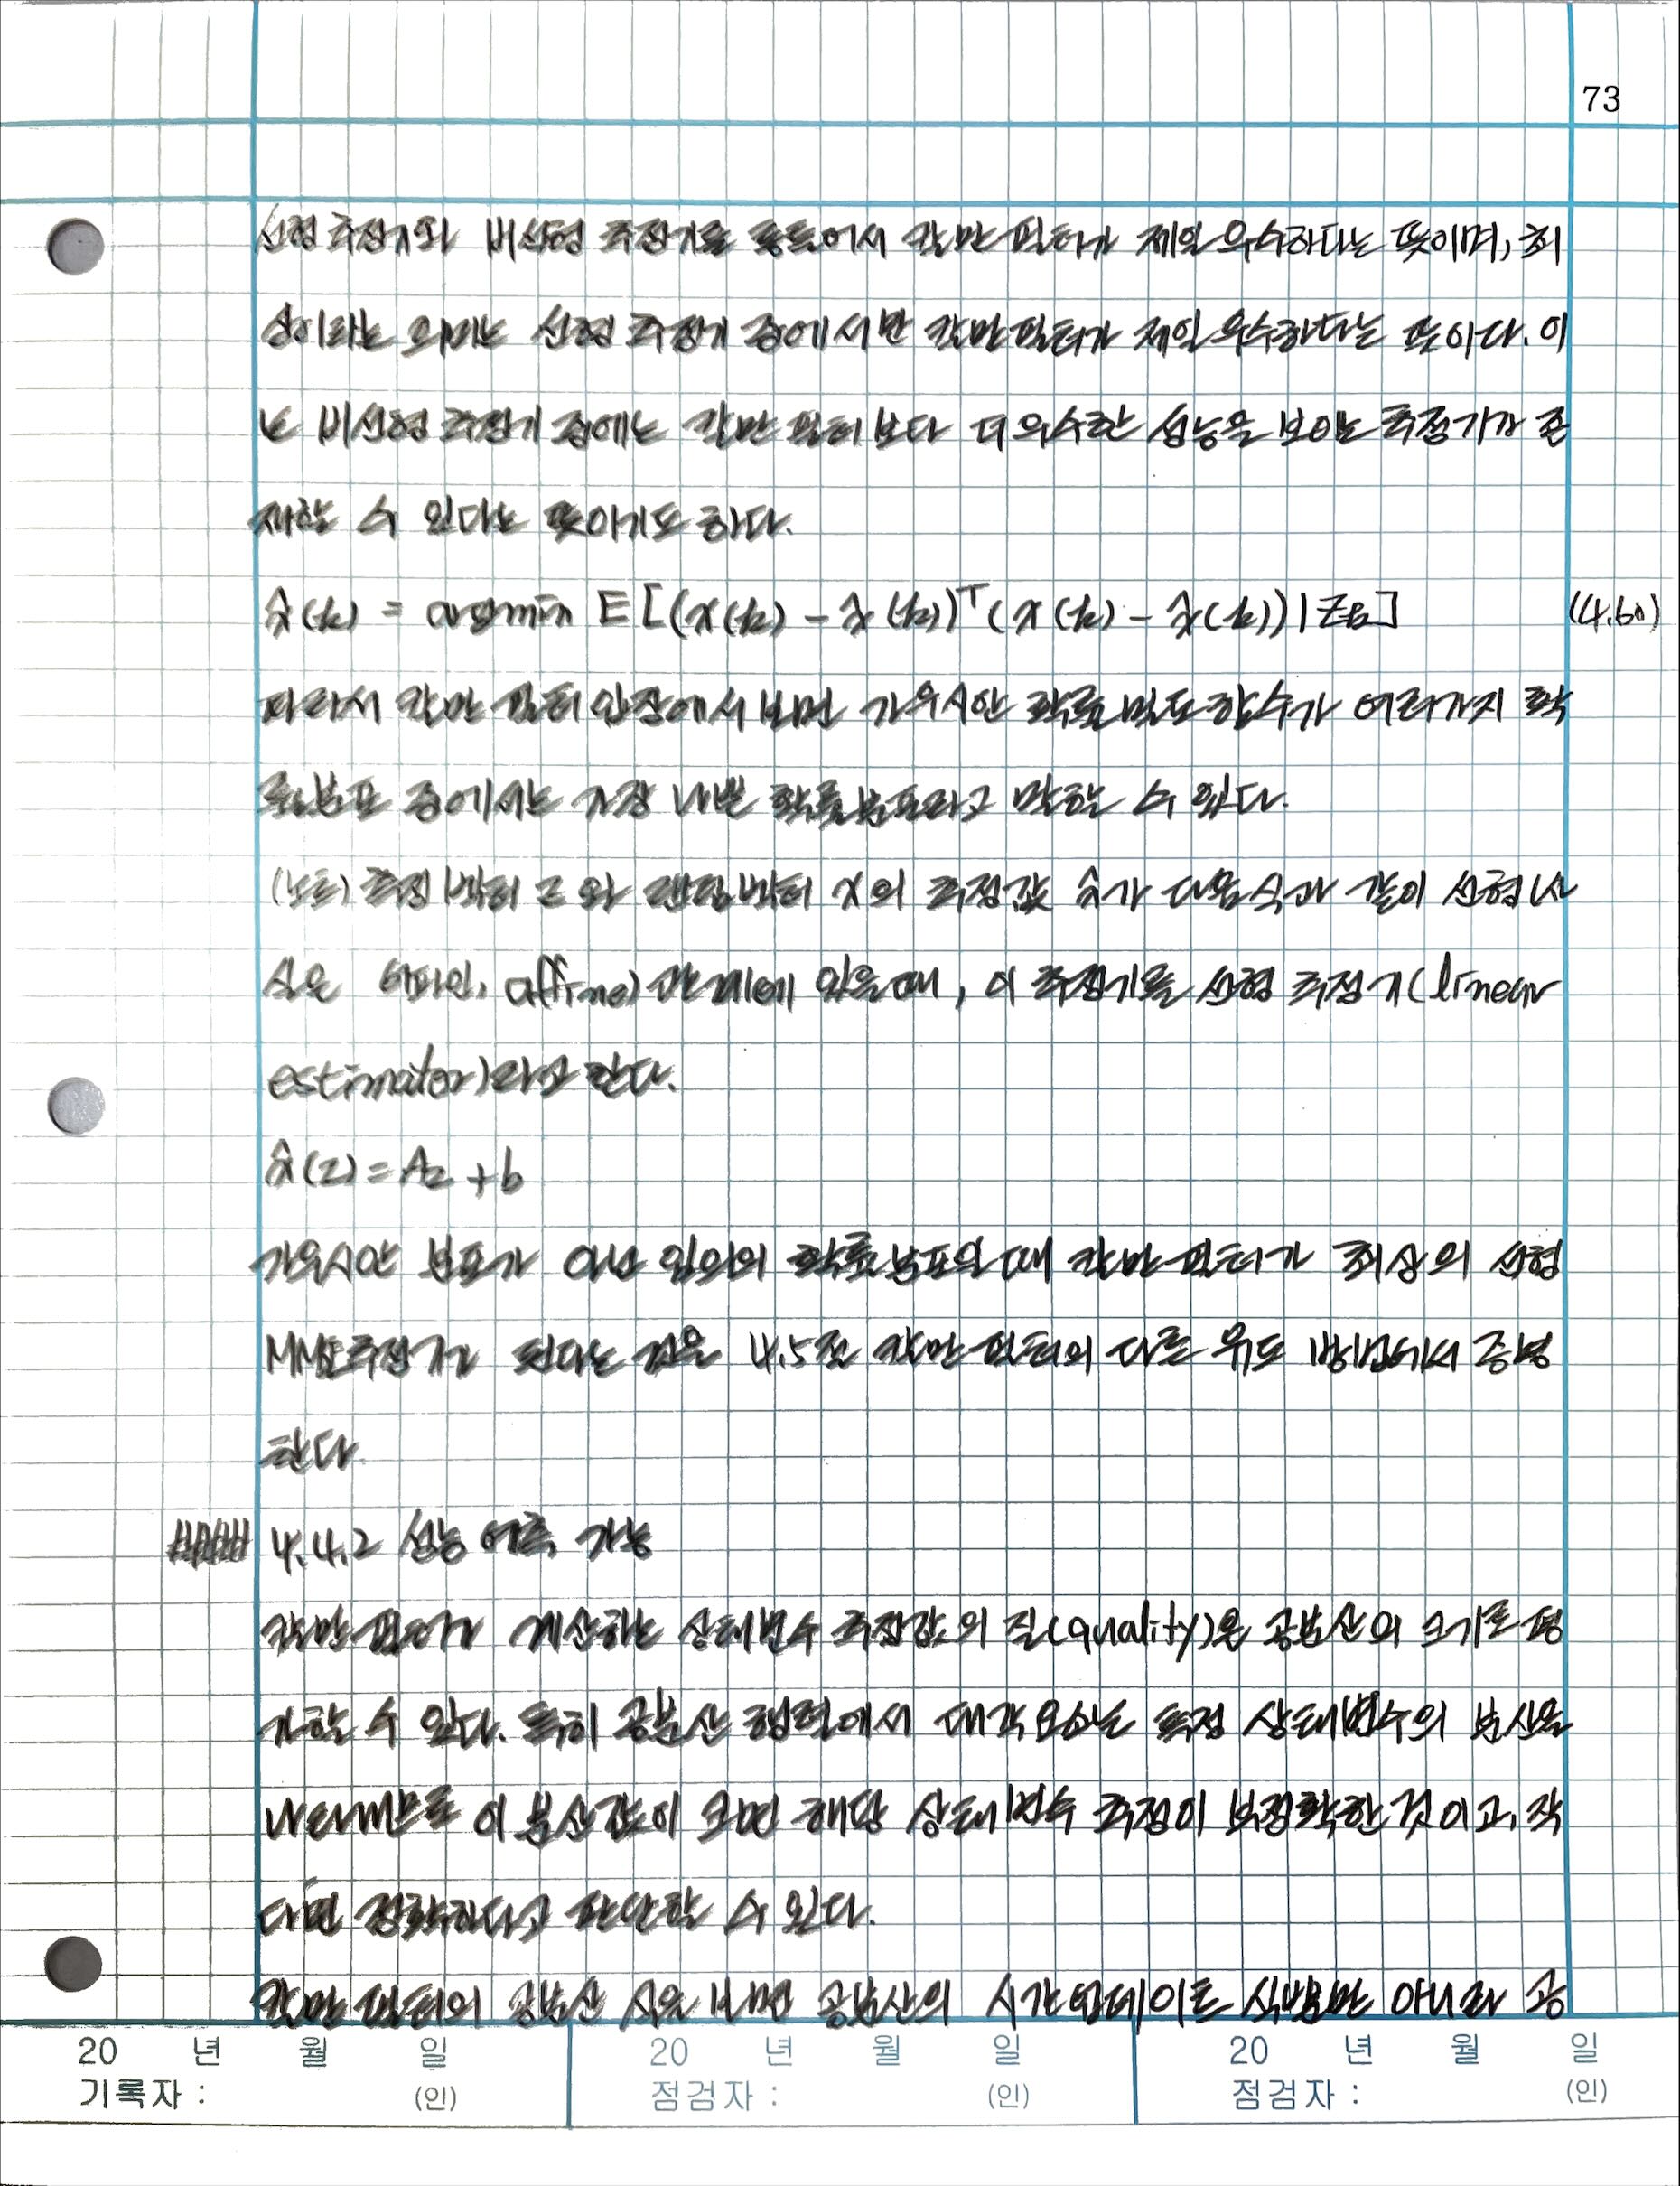 73
선형 추정기와 비선형 추정기를 통틀어서 칼만 필터가 제일 우수하다는 뜻이며, 최
상이라는 의미는 선형 추정기 중에서만 칼만 필터가 제일 우수하다는 뜻이다. 이
는 비선형 추정기 중에는 칼만 필터보다 더 우수한 성능을 보이는 추정기가 존
재할 수 있다는 뜻이기도 하다.
x̂(k) = argmin E[(x(k) - x̂(k))ᵀ(x(k) - x̂(k))|Zk] (4.60)
따라서 칼만 필터 입장에서 보면 가우시안 확률밀도함수가 여러가지 확
률분포 중에서는 가장 나쁜 확률분포라고 말할 수 있다.
(노트) 측정 벡터 z와 랜덤벡터 x의 추정값 x̂가 다음 식과 같이 선형(사
실은 어파인, affine) 관계에 있을 때, 이 추정기를 선형 추정기(linear
estimator)라고 한다.
x̂(z) = Az + b
가우시안 분포가 아닌 임의의 확률분포일 때 칼만 필터가 최상의 선형
MMSE 추정기가 된다는 것을 4.5절 칼만 필터의 다른 유도 방법에서 증명
한다.
4.4.2 성능 예측 가능
칼만 필터가 계산하는 상태변수 추정값의 질(quality)은 공분산의 크기로 평
가할 수 있다. 특히 공분산 행렬에서 대각 요소는 특정 상태변수의 분산을
나타내므로 이 분산값이 크면 해당 상태변수 추정이 부정확한 것이고, 작
다면 정확하다고 판단할 수 있다.
칼만 필터의 공분산 식을 보면 공분산의 시간 업데이트 식뿐만 아니라 공
20 년 월 일 20 년 월 일 20 년 월 일
기록자 : (인) 점검자 : (인) 점검자 : (인)